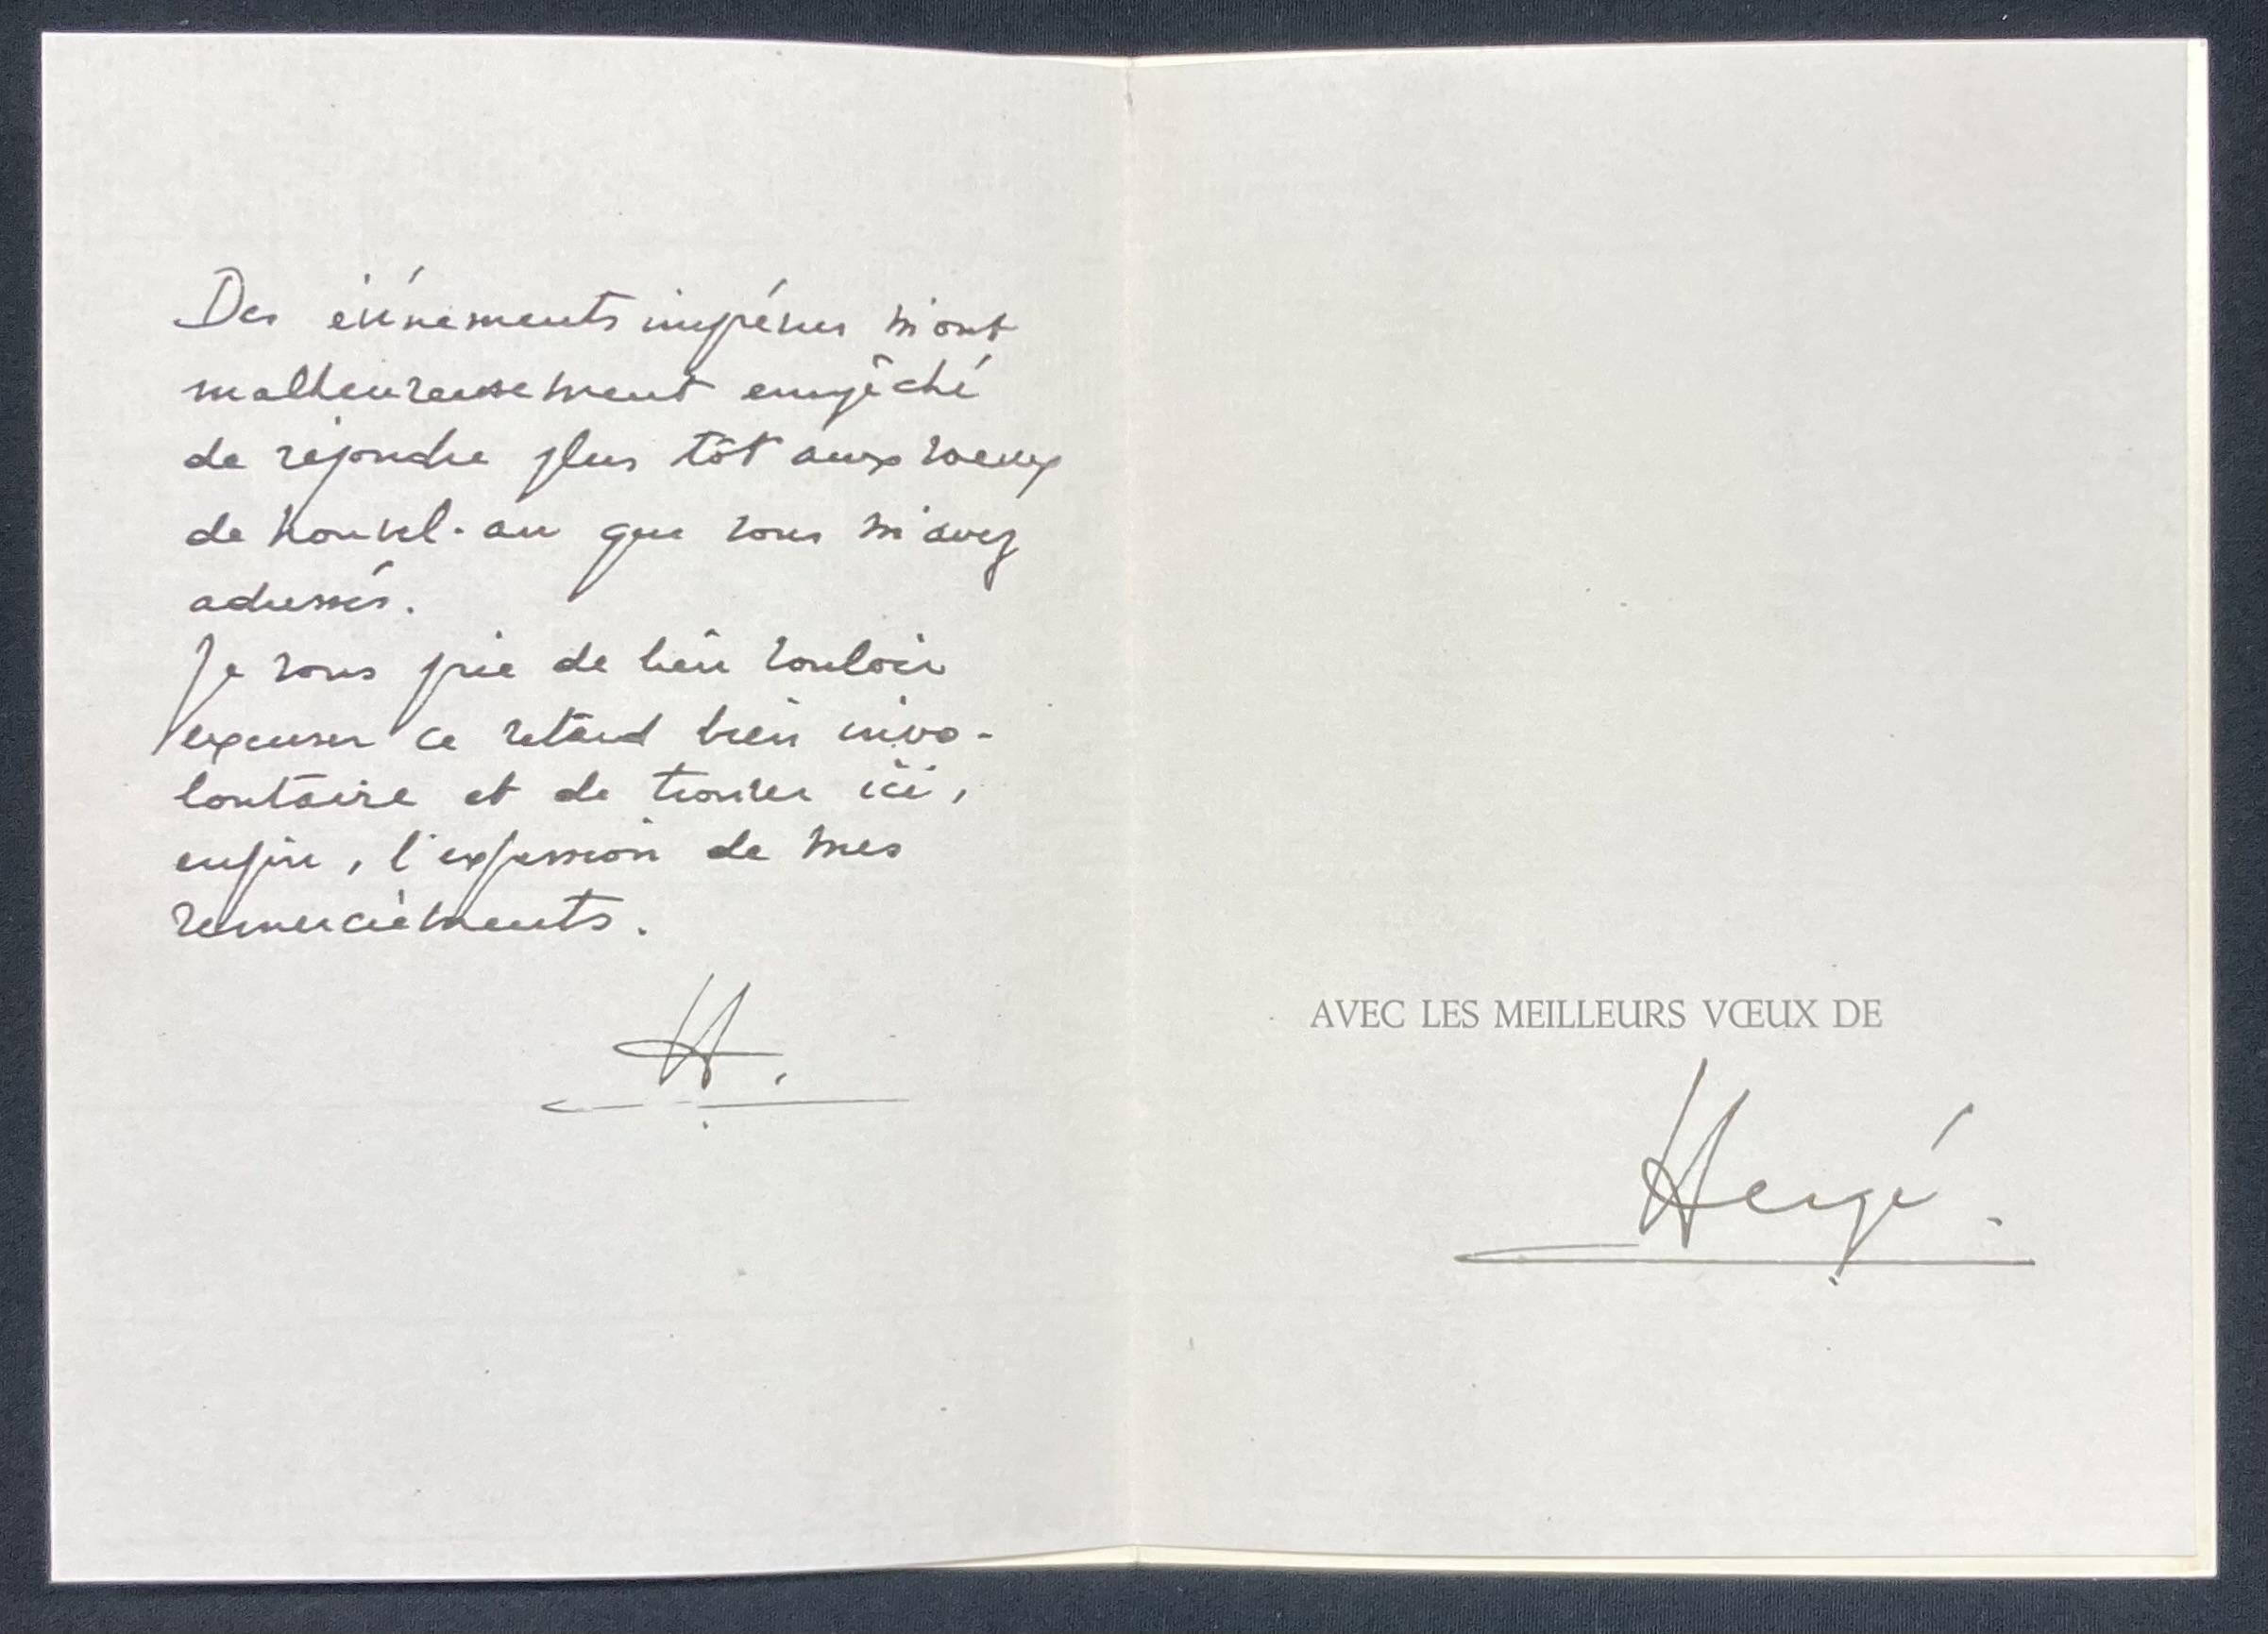 Des événements imprévus m'ont
malheureusement empêché
de répondre plus tôt aux voeux
de nouvel-an que vous m'avez
adressés.
Je vous prie de bien vouloir
excuser ce retard bien invo-
lontaire et de trouver ici,
enfin, l'expression de mes
remerciements.
H.
AVEC LES MEILLEURS VŒUX DE
Hergé.